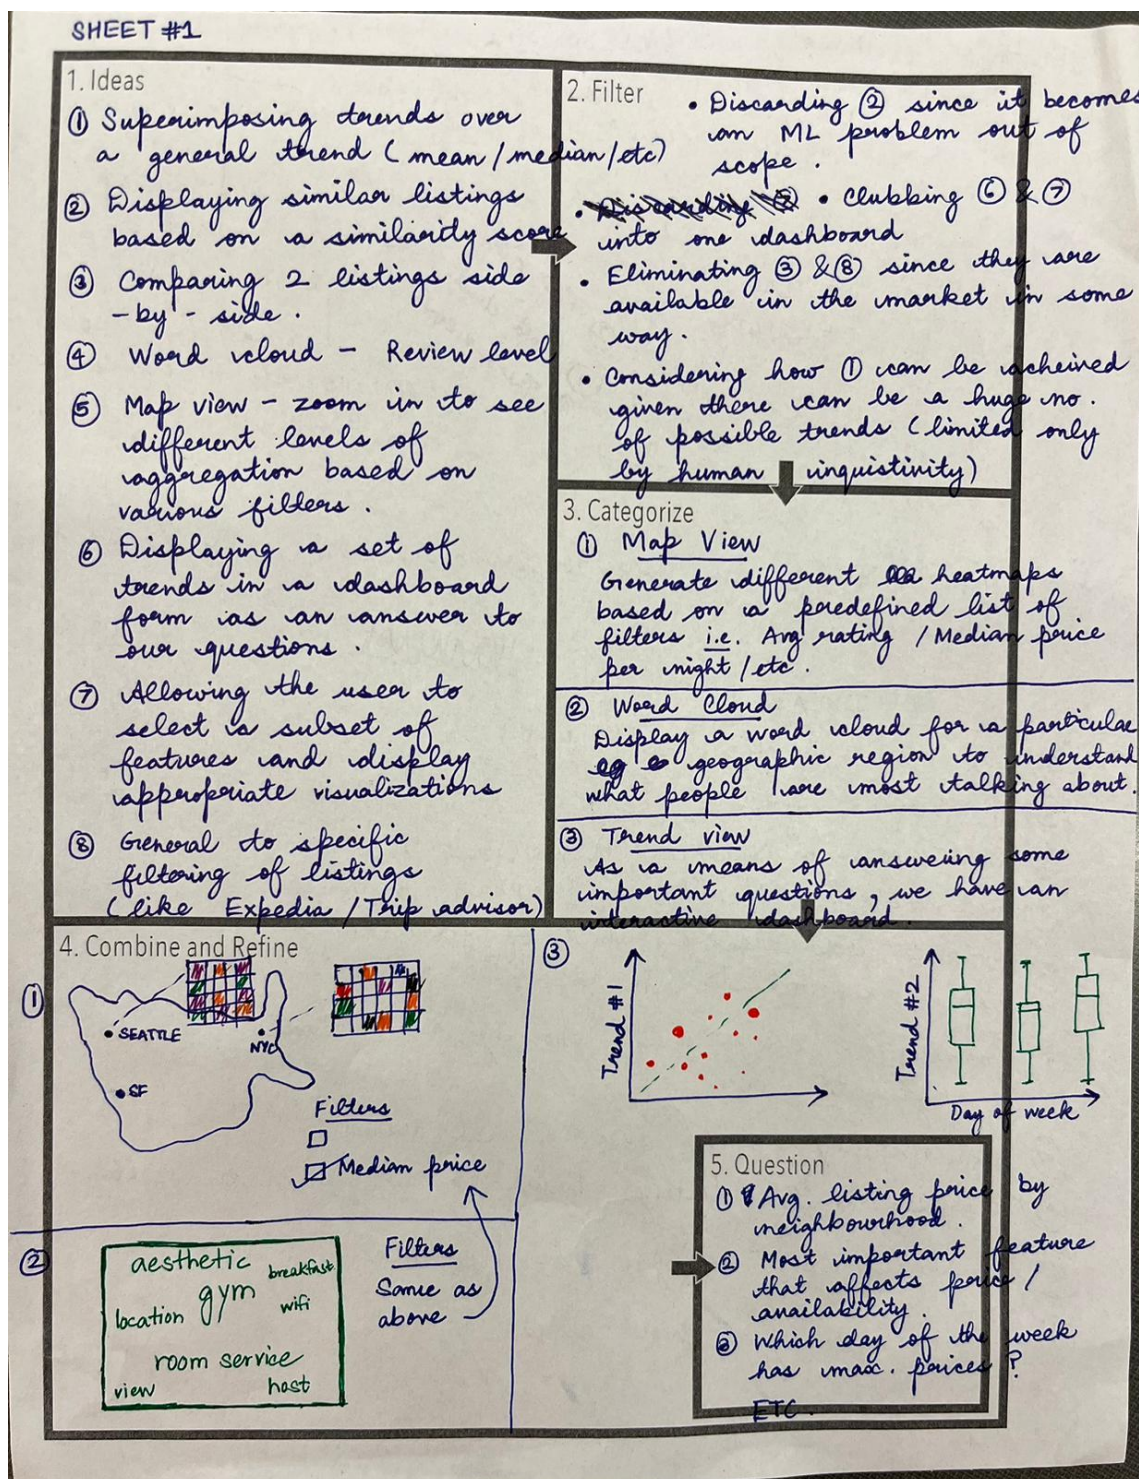 SHEET #1
1. Ideas
① Superimposing trends over
a general trend (mean/median/etc)
② Displaying similar listings
based on a similarity score
③ Comparing 2 listings side
-by-side.
④ Word cloud - Review level
⑤ Map view - zoom in to see
different levels of
aggregation based on
various filters.
⑥ Displaying a set of
trends in a dashboard
form as an answer to
our questions.
⑦ Allowing the user to
select a subset of
features and display
appropriate visualizations
⑧ General to specific
filtering of listings
(like Expedia / Trip advisor)
2. Filter
• Discarding ② since it becomes
an ML problem out of
scope.
• Clubbing ⑥ & ⑦
into one dashboard
• Eliminating ③ & ⑧ since they are
available in the market in some
way.
• Considering how ① can be acheived
given there can be a huge no.
of possible trends (limited only
by human inquistivity)
3. Categorize
① Map View
Generate different heatmaps
based on a predefined list of
filters i.e. Avg rating / Median price
per night / etc.
② Word Cloud
Display a word cloud for a particular
geographic region to understand
what people are most talking about.
③ Trend view
As a means of answering some
important questions, we have an
interactive dashboard.
4. Combine and Refine
①
SEATTLE
NYC
SF
Filters
Median price
②
aesthetic
breakfast
gym
location
wifi
room service
view
host
Filters
Same as
above
③
Trend #1
Trend #2
Day of week
5. Question
① Avg. listing price by
neighbourhood.
② Most important feature
that affects price/
availability.
③ Which day of the week
has max. prices?
ETC.